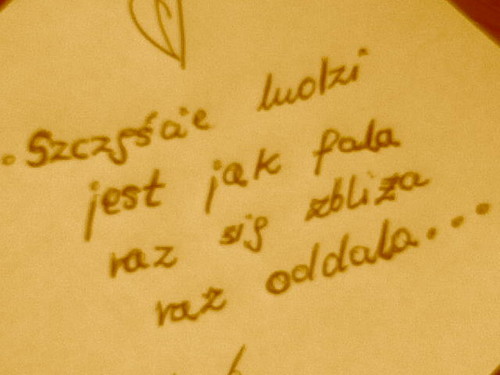 Szczęście ludzi
jest jak fala
raz się zbliża
raz oddala...